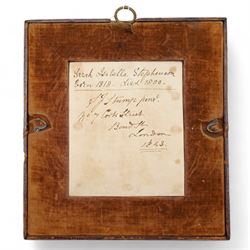 Sarah Isabella Stephenson
Born 1818. died 1880.
S J Stump pinxt.
No 7 Cork Street
Bond St
London
1843